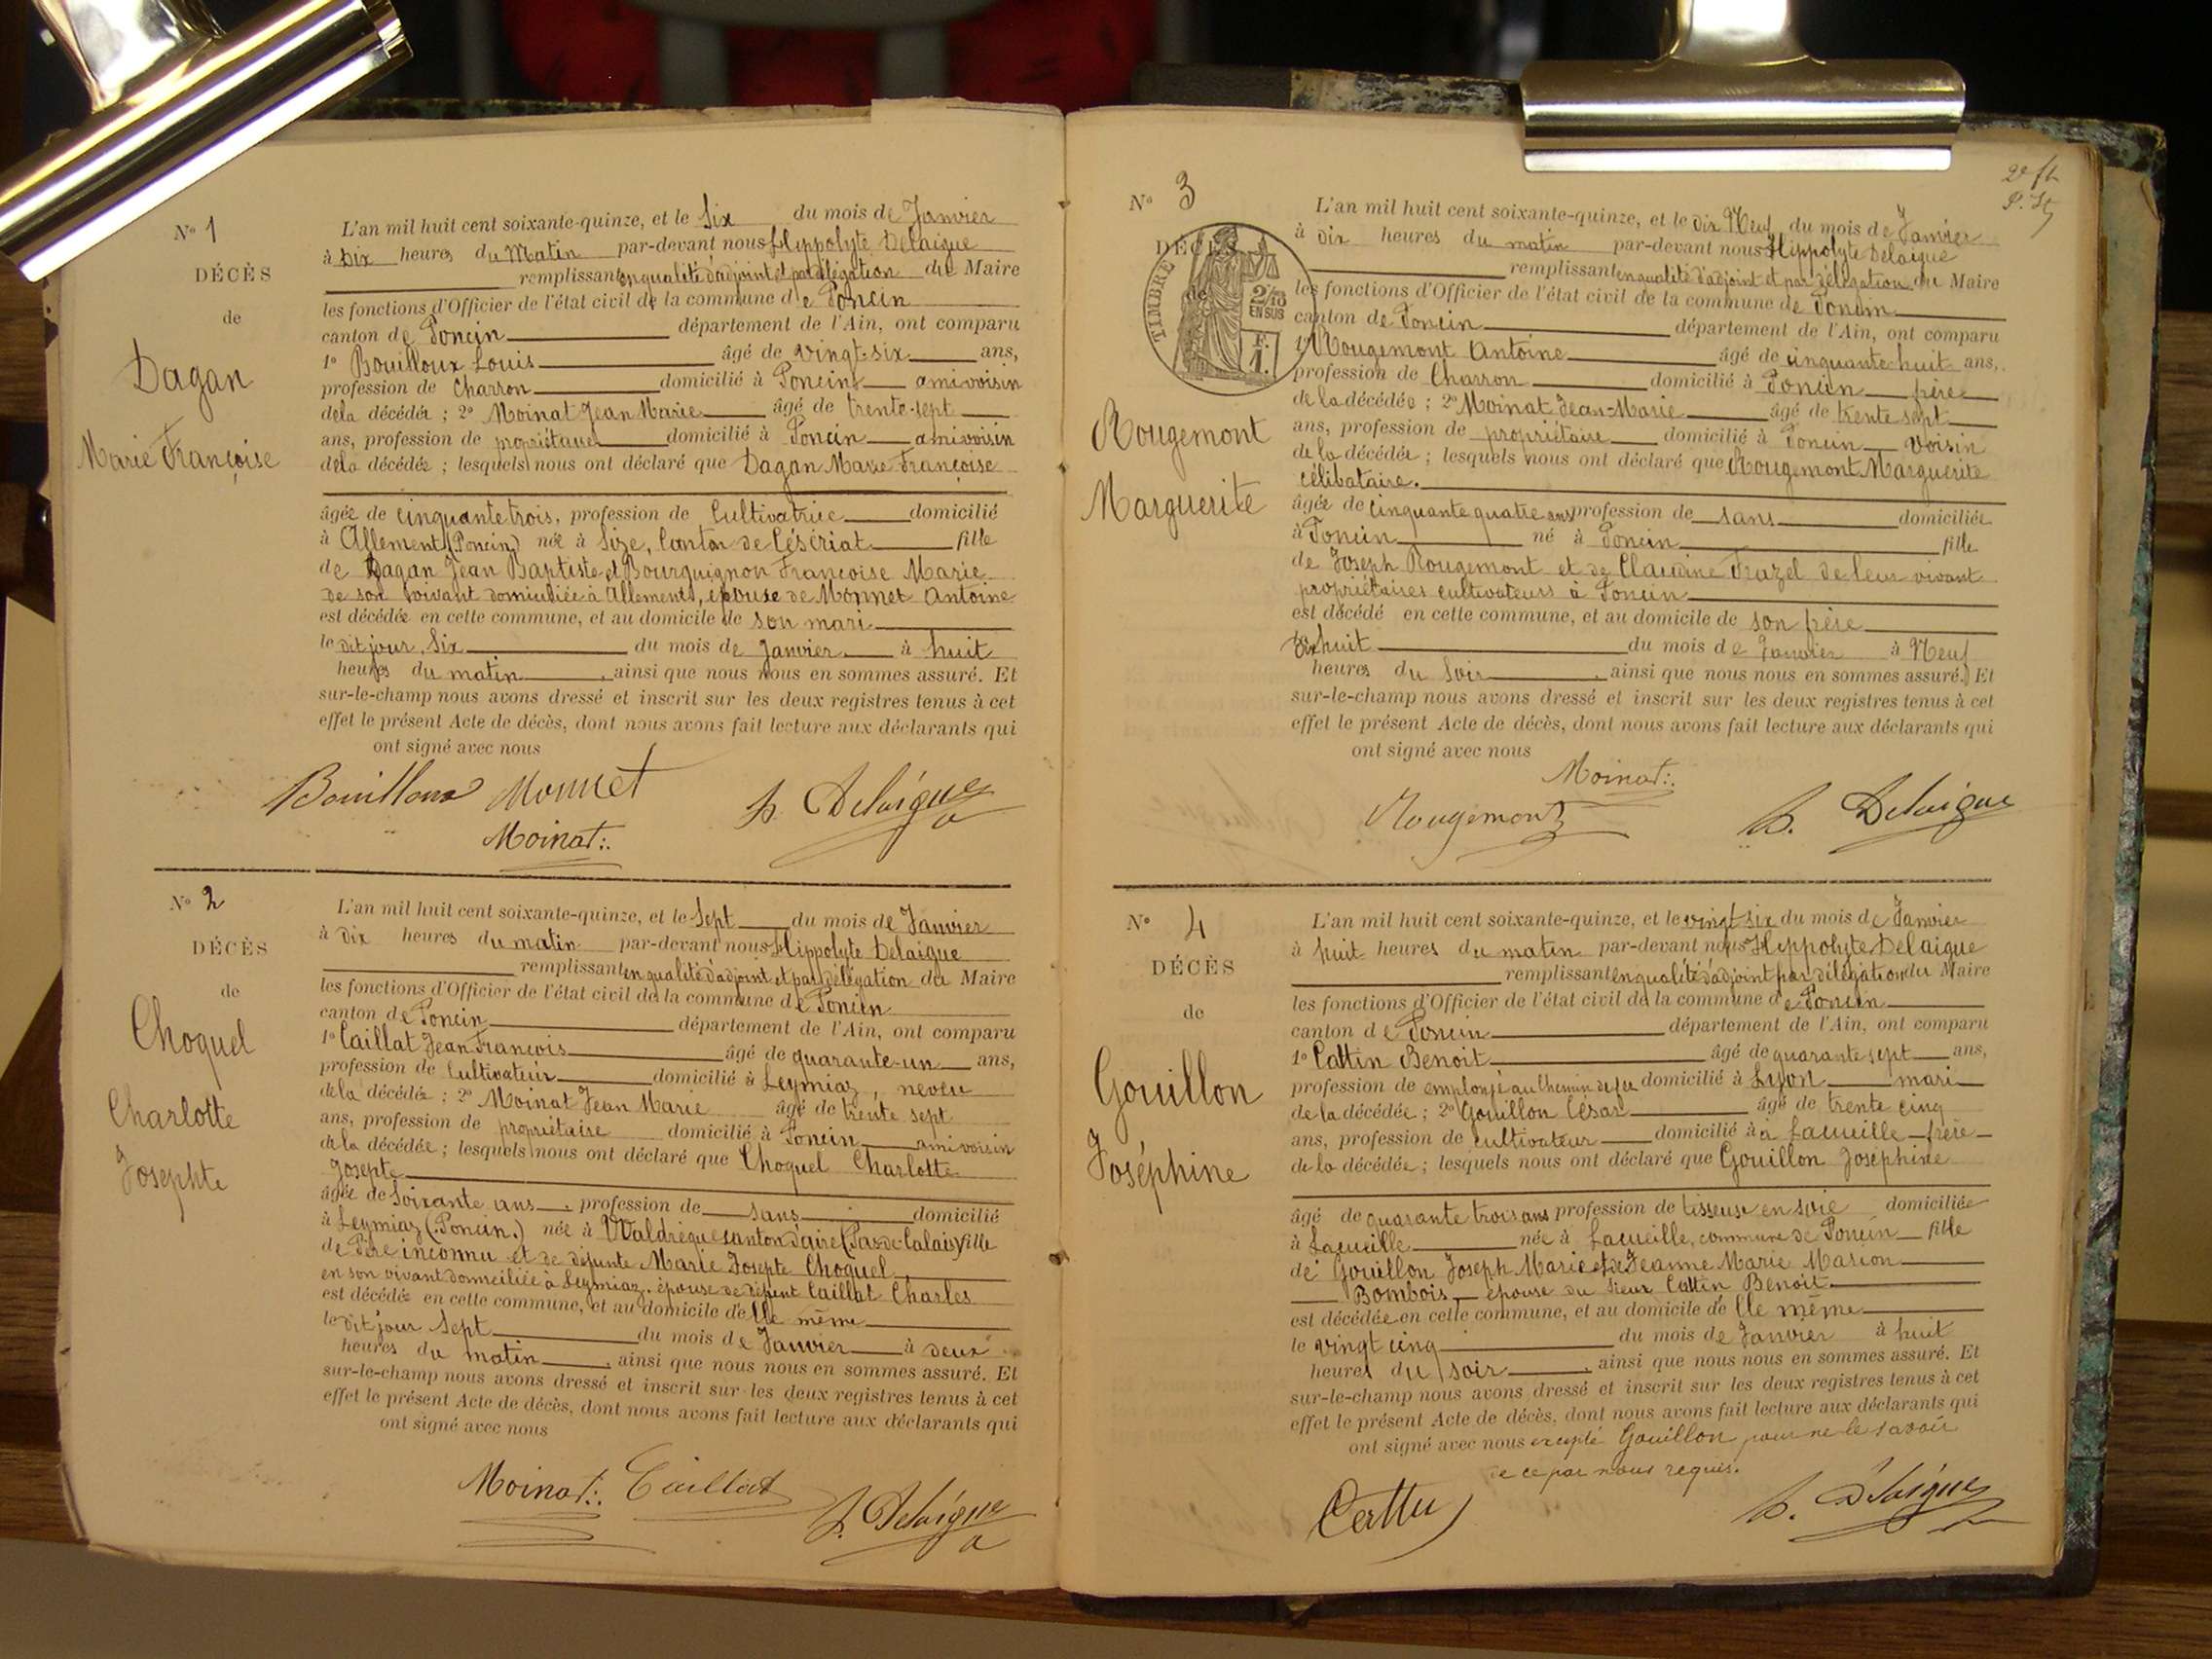 N° 1
DÉCÈS
de
Dagan
Marie Françoise
L'an mil huit cent soixante-quinze, et le Six du mois de Janvier
à Dix heures du Matin par-devant nous Hippolyte Delaigue
remplissant en qualité d'adjoint et par délégation du Maire
les fonctions d'Officier de l'état civil de la commune de Poncin
canton de Poncin département de l'Ain, ont comparu
1° Bouilloux Louis âgé de vingt-six ans,
profession de Charron domicilié à Poncin ami voisin
de la décédée ; 2° Moinat Jean Marie âgé de trente-sept
ans, profession de propriétaire domicilié à Poncin ami voisin
de la décédée ; lesquels nous ont déclaré que Dagan Marie Françoise
âgée de cinquante trois, profession de Cultivatrice domicilié
à Allement (Poncin) née à Size, Canton de Céseriat fille
de Dagan Jean Baptiste et Bourguignon Françoise Marie
de son vivant domiciliée à Allement, épouse de Monnet Antoine
est décédée en cette commune, et au domicile de son mari
le dit jour, Six du mois de Janvier à huit
heures du matin, ainsi que nous nous en sommes assuré. Et
sur-le-champ nous avons dressé et inscrit sur les deux registres tenus à cet
effet le présent Acte de décès, dont nous avons fait lecture aux déclarants qui
ont signé avec nous
Bouilloux Monnet H. Delaigue
Moinat
N° 2
DÉCÈS
de
Choquel
Charlotte
Josephte
L'an mil huit cent soixante-quinze, et le Sept du mois de Janvier
à Dix heures du matin par-devant nous Hippolyte Delaigue
remplissant en qualité d'adjoint et par délégation du Maire
les fonctions d'Officier de l'état civil de la commune de Poncin
canton de Poncin département de l'Ain, ont comparu
1° Caillat Jean François âgé de quarante-un ans,
profession de Cultivateur domicilié à Leymiaz, neveu
de la décédée ; 2° Moinat Jean Marie âgé de trente sept
ans, profession de propriétaire domicilié à Poncin ami voisin
de la décédée ; lesquels nous ont déclaré que Choquel Charlotte
Josepte
âgée de Soixante ans, profession de sans domicilié
à Leymiaz (Poncin.) née à Waldrèque canton d'aire (Pas-de-Calais) fille
de Père inconnu et de défunte Marie Josepte Choquel
en son vivant domiciliée à Leymiaz, épouse de défunt Caillat Charles
est décédée en cette commune, et au domicile d'elle même
le dit jour Sept du mois de Janvier à deux
heures du matin, ainsi que nous nous en sommes assuré. Et
sur-le-champ nous avons dressé et inscrit sur les deux registres tenus à cet
effet le présent Acte de décès, dont nous avons fait lecture aux déclarants qui
ont signé avec nous
Moinat Caillat
H. Delaigue
2e ft
N° 3
DÉCÈS
de
TIMBRE
2/10
EN SUS
F.
1.
Rougemont
Marguerite
L'an mil huit cent soixante-quinze, et le dix Neuf du mois de Janvier
à Dix heures du matin par-devant nous Hippolyte Delaigue
remplissant en qualité d'adjoint et par délégation du Maire
les fonctions d'Officier de l'état civil de la commune de Poncin
canton de Poncin département de l'Ain, ont comparu
1° Rougemont Antoine âgé de cinquante-huit ans,
profession de Charron domicilié à Poncin frère
de la décédée ; 2° Moinat Jean-Marie âgé de trente sept
ans, profession de propriétaire domicilié à Poncin voisin
de la décédée ; lesquels nous ont déclaré que Rougemont Marguerite
célibataire.
âgée de cinquante quatre ans profession de sans domiciliée
à Poncin né à Poncin fille
de Joseph Rougemont et de Claudine Frazel de leur vivant
propriétaires cultivateurs à Poncin
est décédé en cette commune, et au domicile de son frère
dix huit du mois de Janvier à Neuf
heures du Soir, ainsi que nous nous en sommes assuré. Et
sur-le-champ nous avons dressé et inscrit sur les deux registres tenus à cet
effet le présent Acte de décès, dont nous avons fait lecture aux déclarants qui
ont signé avec nous
Moinat
Rougemont H. Delaigue
N° 4
DÉCÈS
de
Gouillon
Joséphine
L'an mil huit cent soixante-quinze, et le vingt six du mois de Janvier
à huit heures du matin par-devant nous Hippolyte Delaigue
remplissant en qualité d'adjoint par délégation du Maire
les fonctions d'Officier de l'état civil de la commune de Poncin
canton de Poncin département de l'Ain, ont comparu
1° Cattin Benoit âgé de quarante sept ans,
profession de employé au Chemin de fer domicilié à Lyon mari
de la décédée ; 2° Gouillon César âgé de trente cinq
ans, profession de cultivateur domicilié à à Lacueille frère
de la décédée ; lesquels nous ont déclaré que Gouillon Joséphine
âgé de quarante trois ans profession de tisseuse en soie domiciliée
à Lacueille née à Lacueille, commune de Poncin fille
de Gouillon Joseph Marie et de Jeanne Marie Marion
Bombois épouse du Sieur Cattin Benoit
est décédée en cette commune, et au domicile d'elle même
le vingt cinq du mois de Janvier à huit
heures du soir, ainsi que nous nous en sommes assuré. Et
sur-le-champ nous avons dressé et inscrit sur les deux registres tenus à cet
effet le présent Acte de décès, dont nous avons fait lecture aux déclarants qui
ont signé avec nous excepté Gouillon pour ne le savoir
de ce par nous requis.
H. Delaigue